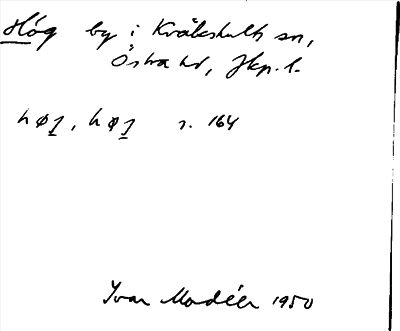 Hög by i Kråkshults sn,
Östra hd, Jkp. l.
hø1, hø1 s. 164
Ivar Modéer 1950